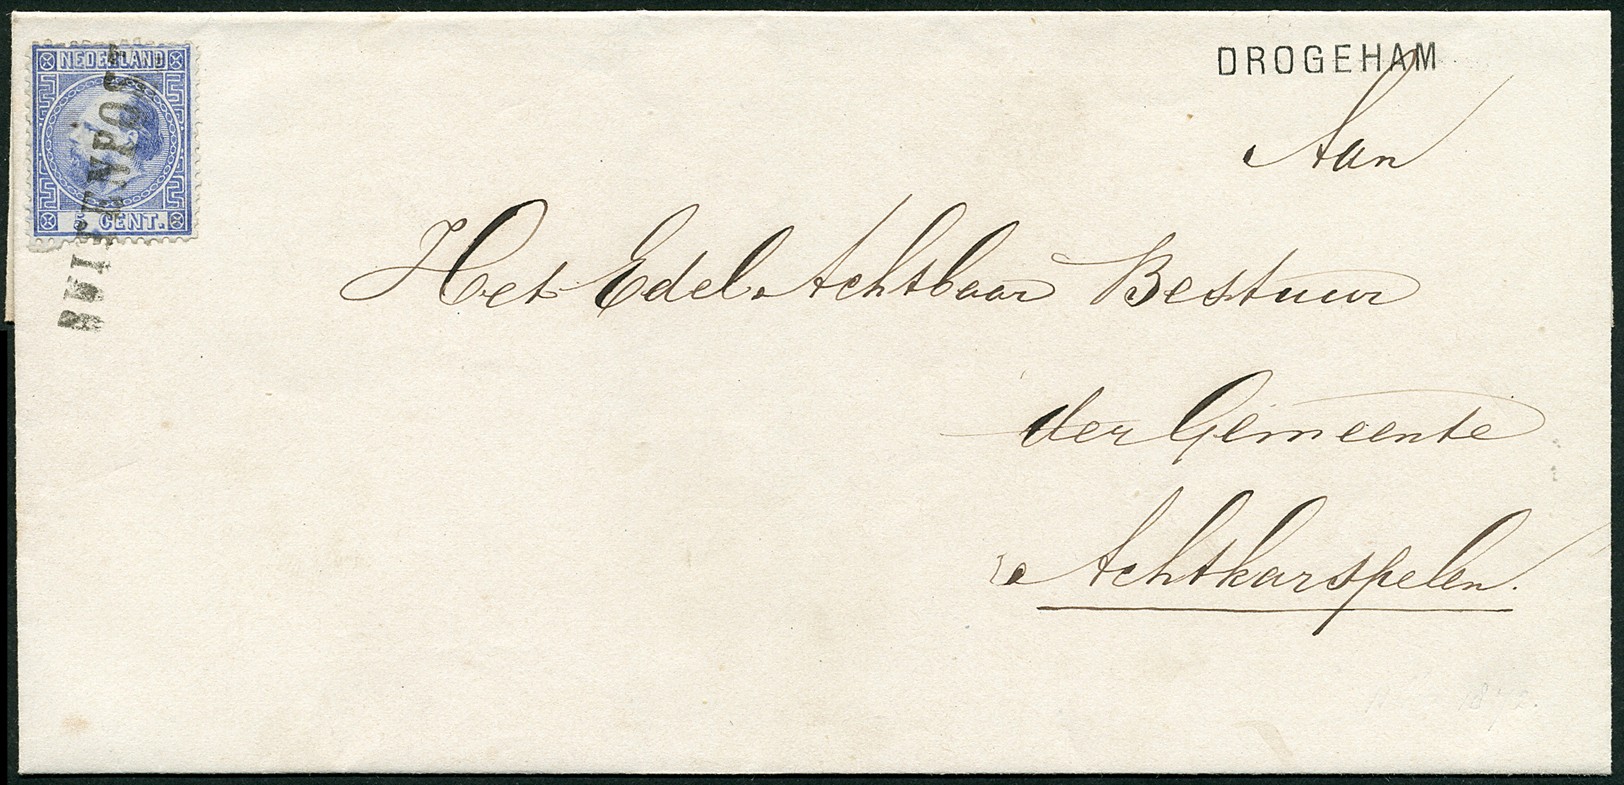 NEDERLAND
CENT.
BUITENPOST
DROGEHAM
Aan
Het Edel Achtbaar Bestuur
der Gemeente
Achtkarspelen.